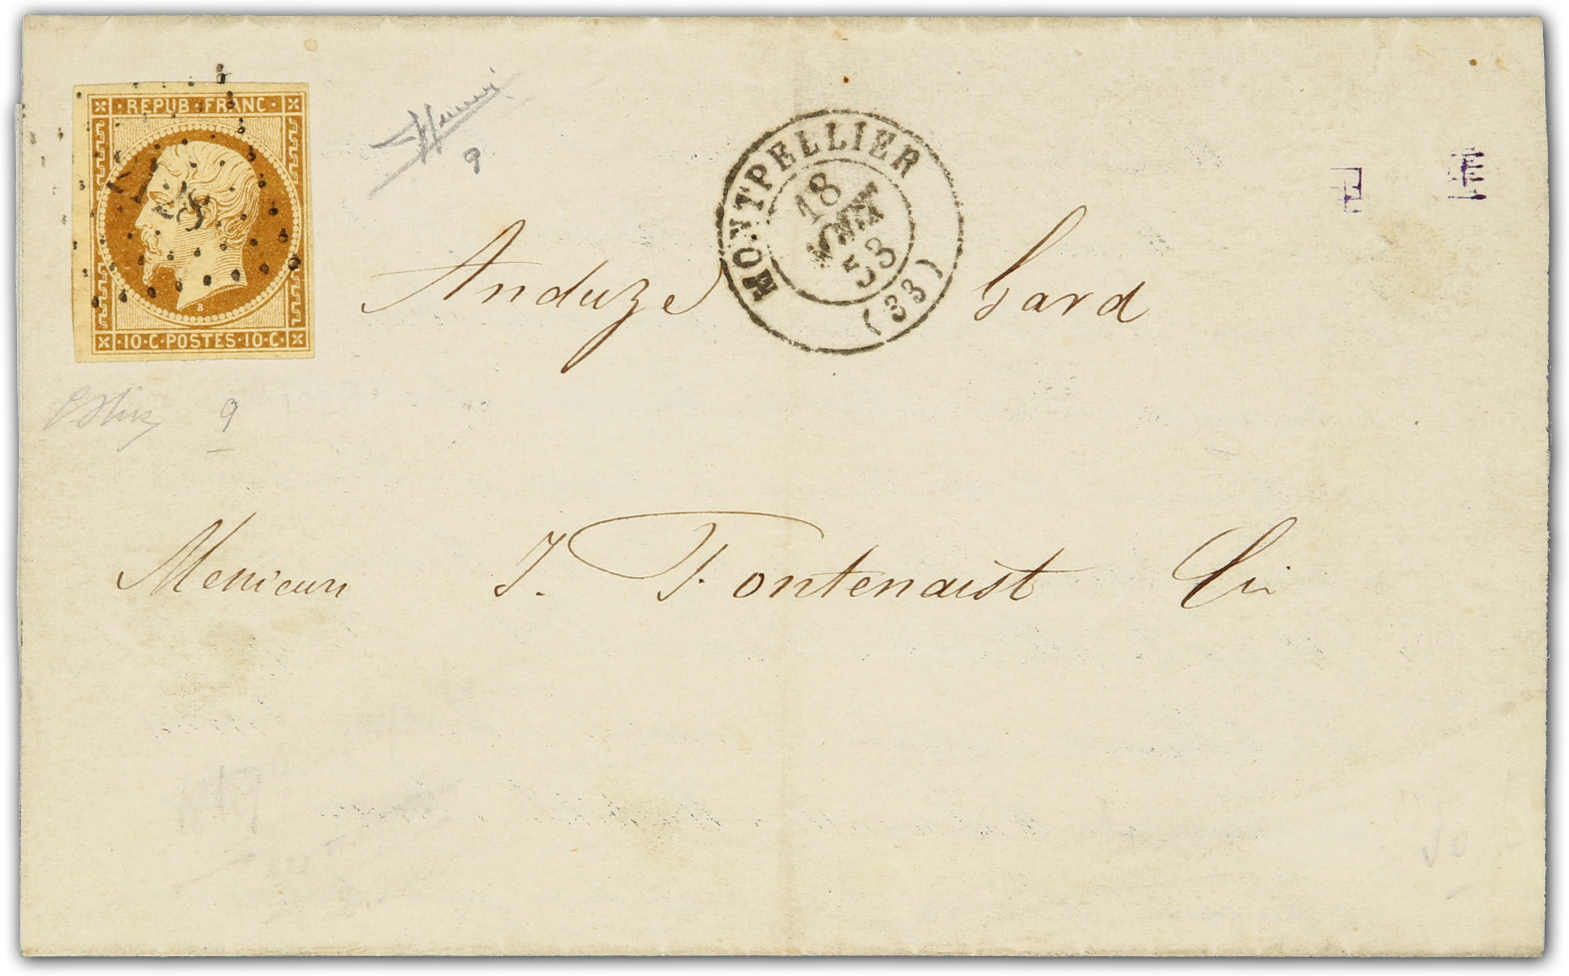 REPUB · FRANC ·
· 10 · C · POSTES · 10 · C ·
B
9
MONTPELLIER
18
53
(33)
Anduze Gard
9
Messieurs J. Fontenaist